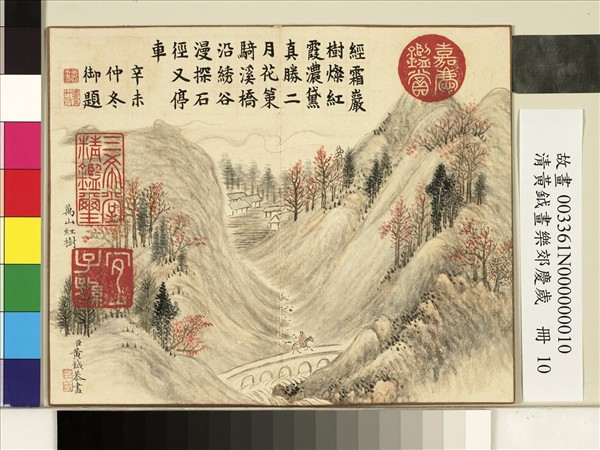 故畫 003361N000000010
清黃鉞畫樂郊慶歲 冊 10
嘉慶
鑑賞
經霜巖
樹燦紅
霞濃黛
真勝二
月花策
騎溪橋
沿綉谷
漫探石
徑又停
車
辛未
仲冬
御題
三希堂
精鑑璽
宜
子孫
萬山紅樹
臣黃鉞恭畫